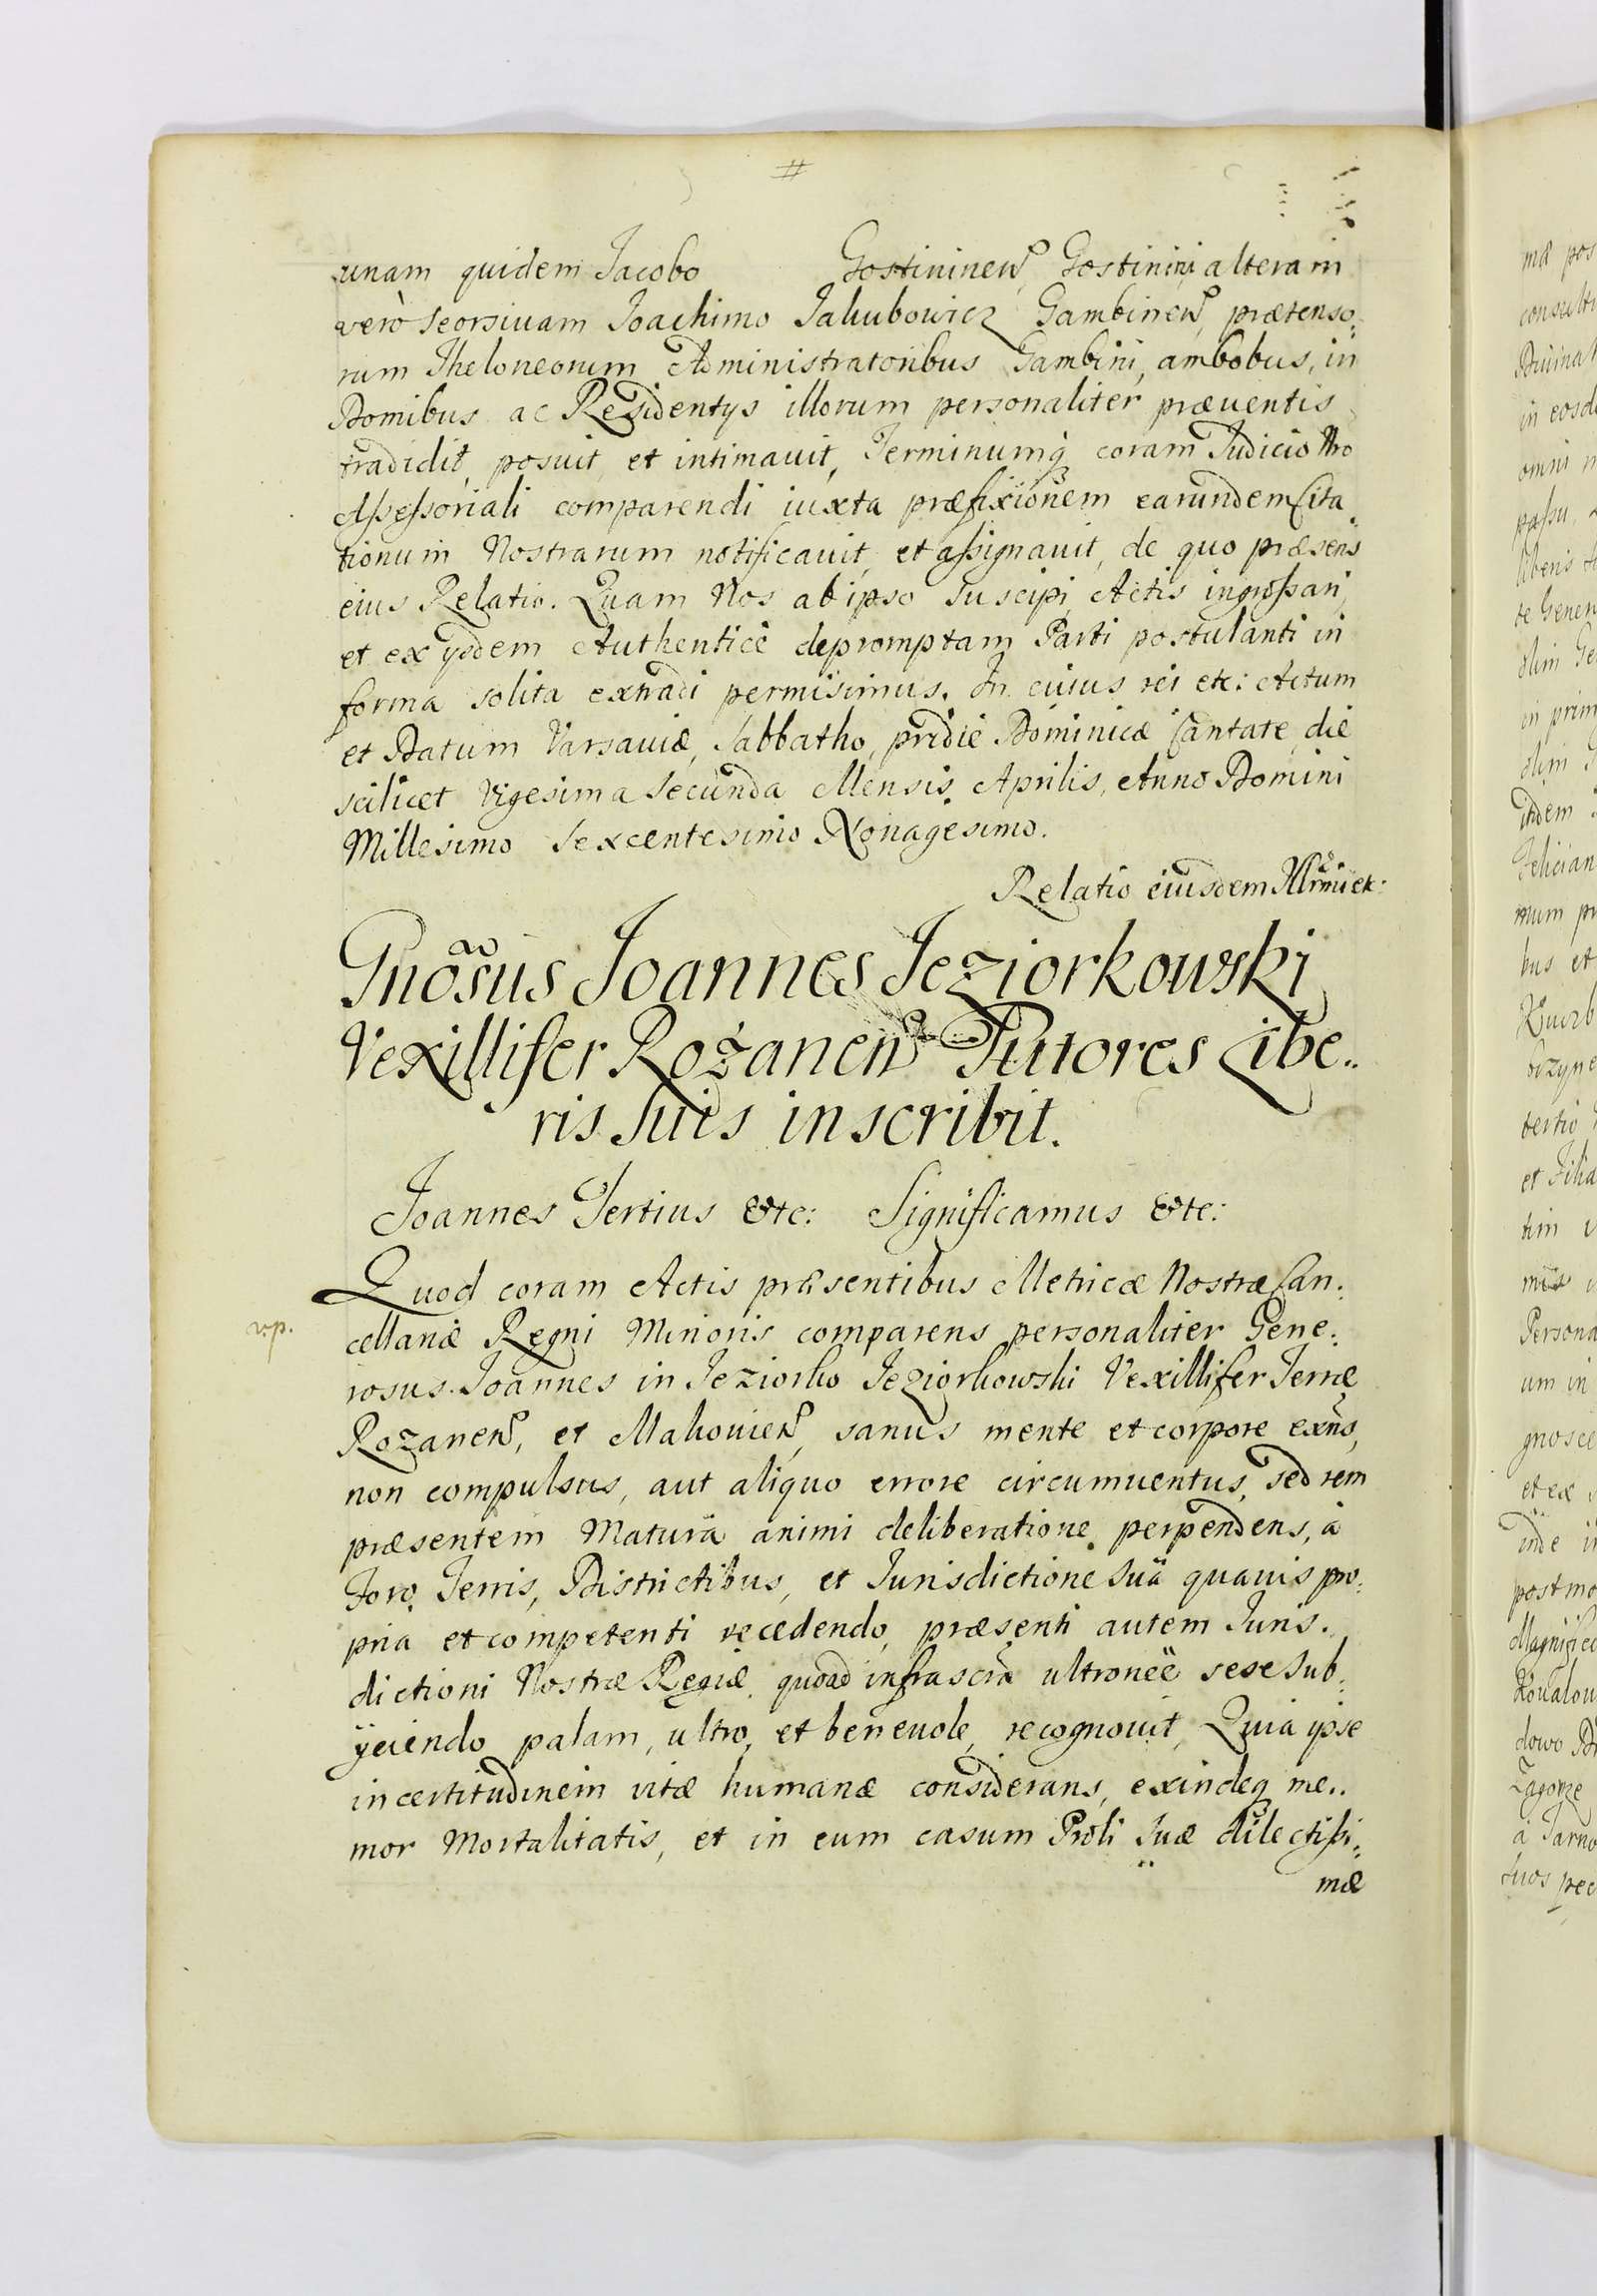 #
unam quidem Jacobo Gostininen̄, Gostinini, alteram
verò Seorsivam Joachimo Jakubowicz Gambinen̄, prætenso:
rum Theloneorum Administratoribus Gambini, ambobus, in
Domibus ac Residentys illorum personaliter præventis
tradidit, posuit, et intimavit, Terminumq̨ coram Judicio Nro
Assessoriali comparendi iuxta præfixionem earundem Cita:
tionum Nostrarum notificavit, et assignavit, de quo præsens
eius Relatio. Quam Nos ab ipso Suscipi, Actis ingrossari,
et ex ijsdem Authenticè depromptam Parti postulanti in
forma solita extradi permisimus. In cuius rei etc: Actum
et Datum Varsaviæ, Sabbatho, pridie Dominicæ Cantate, die
scilicet Vigesima Secunda Mensis Aprilis, Anno Domini
Millesimo Sexcentesimo Nonagesimo.
Relatio eiusdem Illrmi etc:
Gnōsus Joannes Jeziorkowski
Vexillifer Rożanen̄ Tutores Libe..
ris Suis inscribit.
Joannes Tertius &tc: Significamus &tc:
Quod coram Actis præsentibus Metricæ Nostræ Can:
rp.
cellariæ Regni Minoris comparens personaliter Gene:
rosus Joannes in Jeziorko Jeziorkowski Vexillifer Terræ
Rozanen̄, et Makovien̄, sanus mente et corpore exn̄s,
non compulsus, aut aliquo errore circumventus, sed rem
præsentem Maturä animi deliberatione perpendens, à
Foro, Terris, Districtibus, et Jurisdictione Suä quavis pro:
pria et competenti recedendo, præsenti autem Juris..
dictioni Nostræ Regiæ quoad infrascr̄a ultroneë sese sub:
ÿciendo palam, ultro, et benevole, recognovit, Quia ipse
incertitudinem vitæ humanæ considerans, exindeq̨ me..
mor Mortalitatis, et in eum casum Proli Suæ dilectissi:
mæ